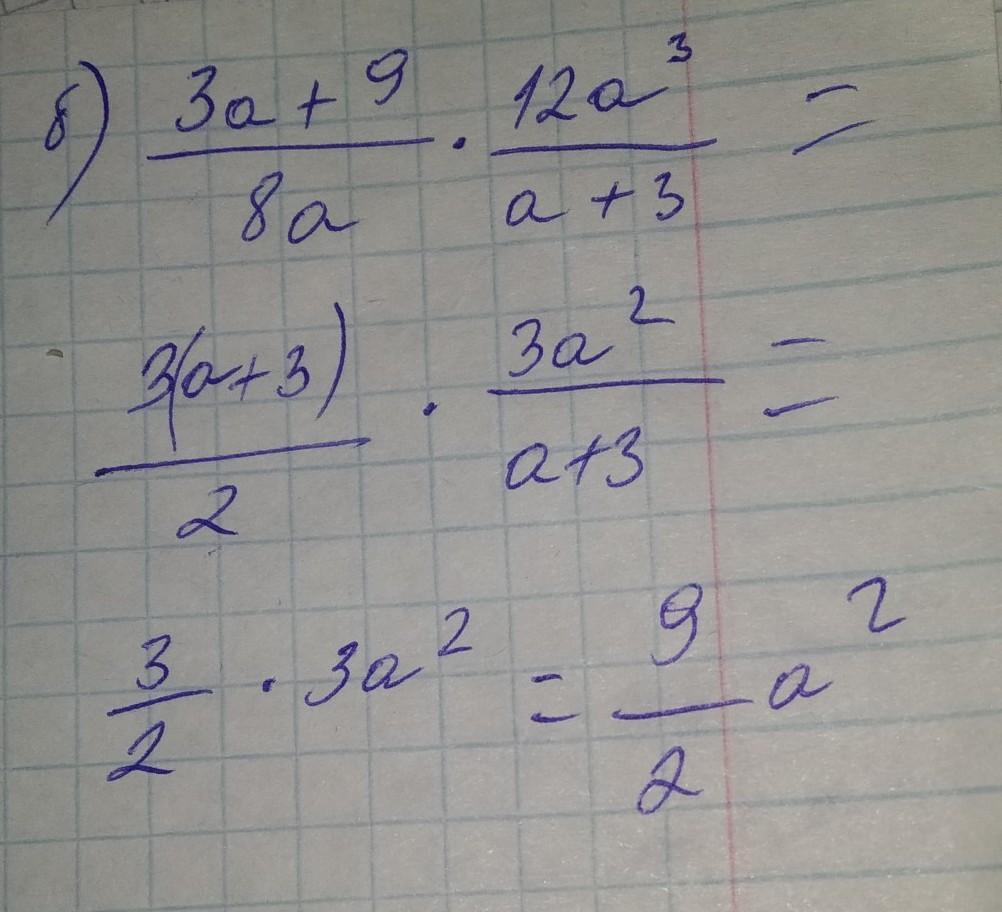 б) (3a + 9)/(8a) · (12a³)/(a + 3) =
(3(a+3))/2 · (3a²)/(a+3) =
3/2 · 3a² = 9/2 a²